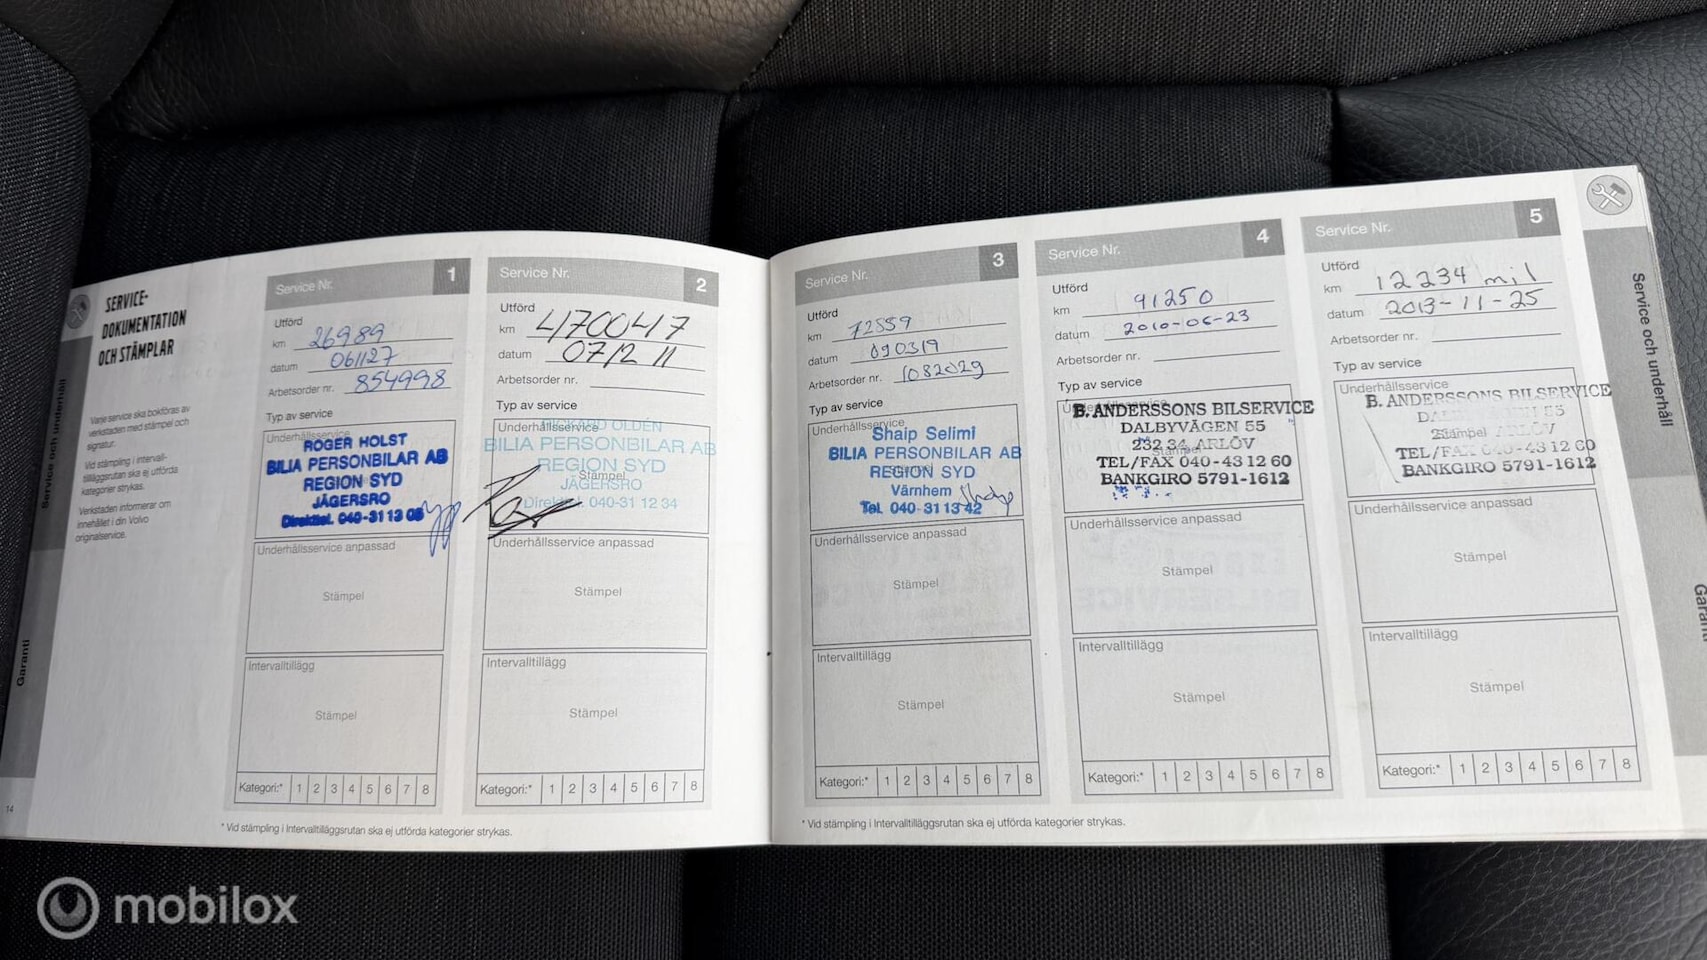 SERVICE-
DOKUMENTATION
OCH STÄMPLAR
Varje service ska bokföras av
verkstaden med stämpel och
signatur.
Vid stämpling i intervall-
tilläggsrutan ska ej utförda
kategorier strykas.
Verkstaden informerar om
innehållet i din Volvo
originalservice.
Service och underhåll
Garanti
14
Service Nr. 1
Utförd
km 26989
datum 061127
Arbetsorder nr. 854998
Typ av service
Underhållsservice
ROGER HOLST
BILIA PERSONBILAR AB
REGION SYD
JÄGERSRO
Direkttel. 040-31 13
Underhållsservice anpassad
Stämpel
Intervalltillägg
Stämpel
Kategori:* 1 2 3 4 5 6 7 8
Service Nr. 2
Utförd
km 470047
datum 0712 11
Arbetsorder nr.
Typ av service
Underhållsservice
OLDÉN
BILIA PERSONBILAR AB
REGION SYD
Stämpel
JÄGERSRO
Direkttel. 040-31 12 34
Underhållsservice anpassad
Stämpel
Intervalltillägg
Stämpel
Kategori:* 1 2 3 4 5 6 7 8
* Vid stämpling i Intervalltilläggsrutan ska ej utförda kategorier strykas.
Service Nr. 3
Utförd
km 72559
datum 090319
Arbetsorder nr. 1082029
Typ av service
Underhållsservice
Shaip Selimi
BILIA PERSONBILAR AB
REGION SYD
Värnhem
Tel. 040-31 13 42
Underhållsservice anpassad
Stämpel
Intervalltillägg
Stämpel
Kategori:* 1 2 3 4 5 6 7 8
Service Nr. 4
Utförd
km 91250
datum 2010-06-23
Arbetsorder nr.
Typ av service
B. ANDERSSONS BILSERVICE
DALBYVÄGEN 55
232 34 ARLÖV
TEL/FAX 040-43 12 60
BANKGIRO 5791-1612
Underhållsservice anpassad
Stämpel
Intervalltillägg
Stämpel
Kategori:* 1 2 3 4 5 6 7 8
Service Nr. 5
Utförd
km 12234 mil
datum 2013-11-25
Arbetsorder nr.
Typ av service
Underhållsservice
B. ANDERSSONS BILSERVICE
Stämpel
TEL/FAX 040-43 12 60
BANKGIRO 5791-1612
Underhållsservice anpassad
Stämpel
Intervalltillägg
Stämpel
Kategori:* 1 2 3 4 5 6 7 8
* Vid stämpling i Intervalltilläggsrutan ska ej utförda kategorier strykas.
Service och underhåll
mobilox